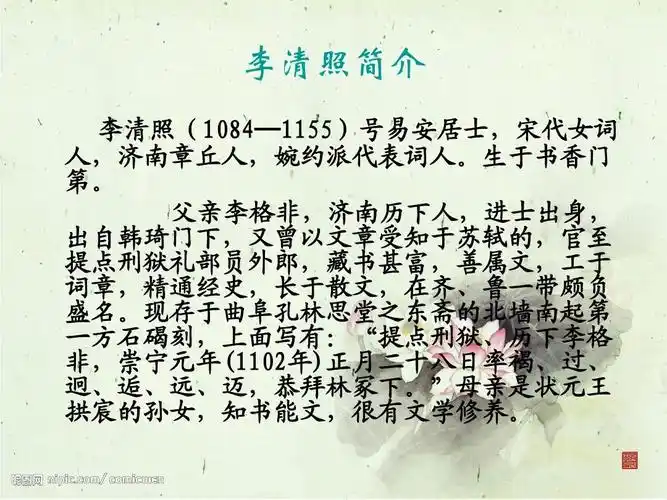 李清照简介
李清照（1084—1155）号易安居士，宋代女词
人，济南章丘人，婉约派代表词人。生于书香门
第。
父亲李格非，济南历下人，进士出身，
出自韩琦门下，又曾以文章受知于苏轼的，官至
提点刑狱礼部员外郎，藏书甚富，善属文，工于
词章，精通经史，长于散文，在齐，鲁一带颇负
盛名。现存于曲阜孔林思堂之东斋的北墙南起第
一方石碣刻，上面写有：“提点刑狱、历下李格
非，崇宁元年(1102年)正月二十八日率褐、过、
迥、逅、远、迈，恭拜林冢下。”母亲是状元王
拱宸的孙女，知书能文，很有文学修养。
昵图网 nipic.com/comicwen